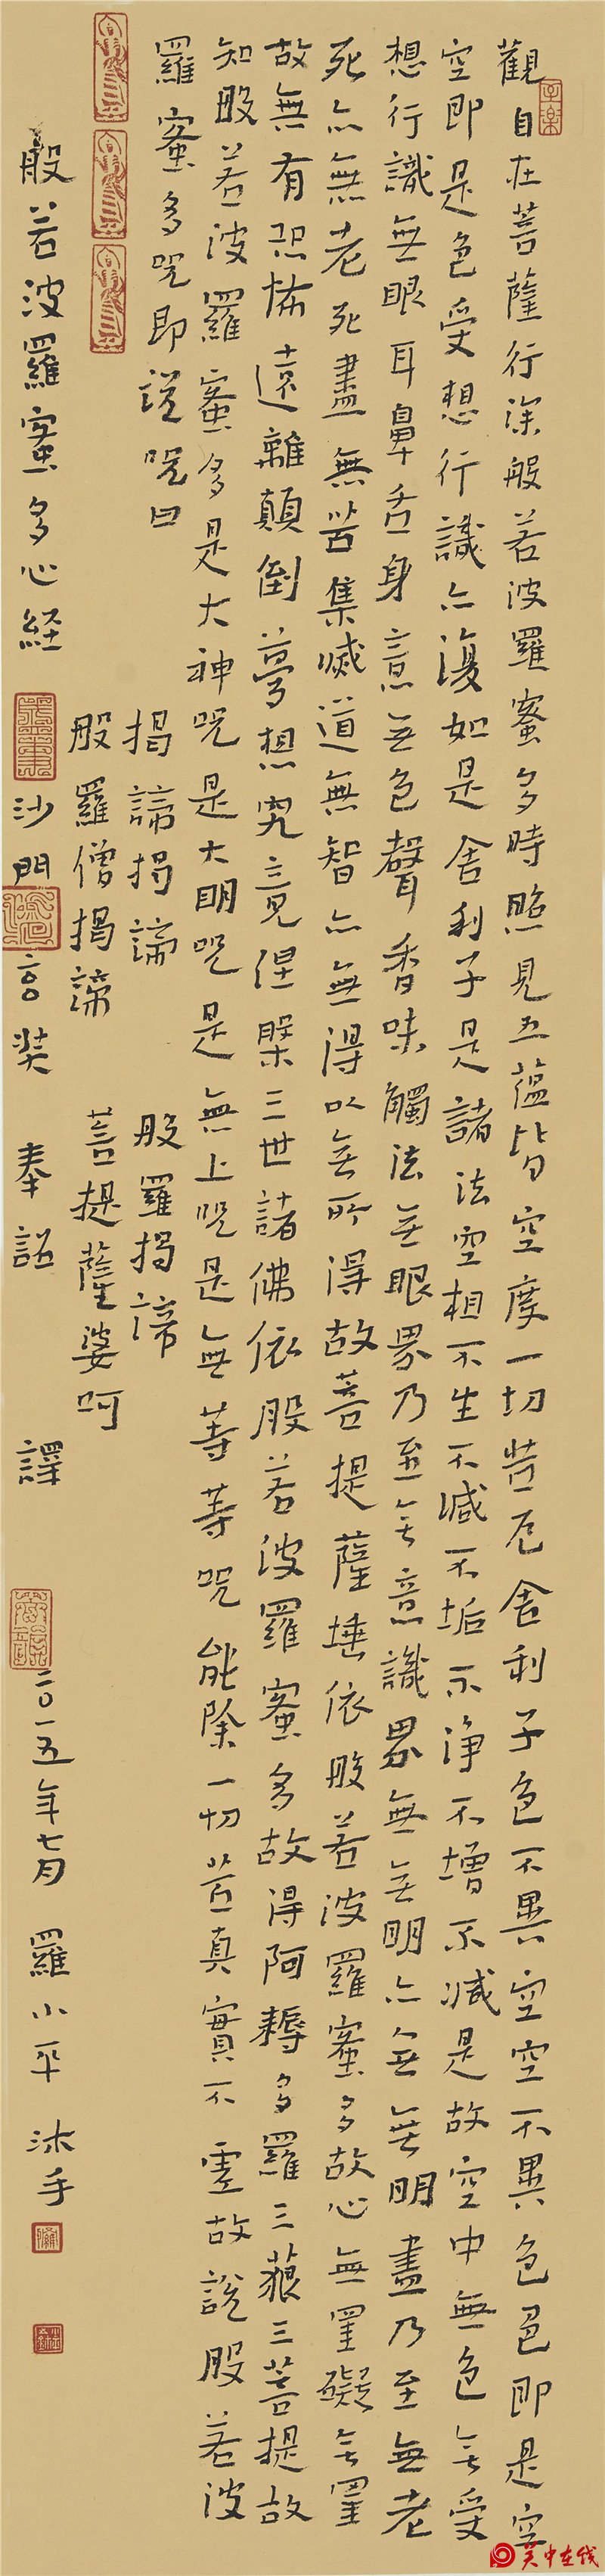 觀自在菩薩行深般若波羅蜜多時照見五蘊皆空度一切苦厄舍利子色不異空空不異色色即是空
空即是色受想行識亦復如是舍利子是諸法空相不生不滅不垢不淨不增不減是故空中無色無受
想行識無眼耳鼻舌身意無色聲香味觸法無眼界乃至無意識界無無明亦無無明盡乃至無老
死亦無老死盡無苦集滅道無智亦無得以無所得故菩提薩埵依般若波羅蜜多故心無罣礙無罣
故無有恐怖遠離顛倒夢想究竟涅槃三世諸佛依般若波羅蜜多故得阿耨多羅三藐三菩提故
知般若波羅蜜多是大神咒是大明咒是無上咒是無等等咒能除一切苦真實不虛故說般若波
羅蜜多咒即說咒曰
揭諦揭諦 般羅揭諦
般羅僧揭諦 菩提薩婆呵
般若波羅蜜多心経 沙門玄奘奉詔譯 二〇一五年七月 羅小平沐手
吴中在线